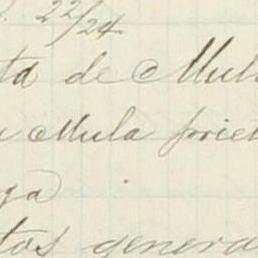 22/24
ta de Mul
Mula priet
ga
tos genera